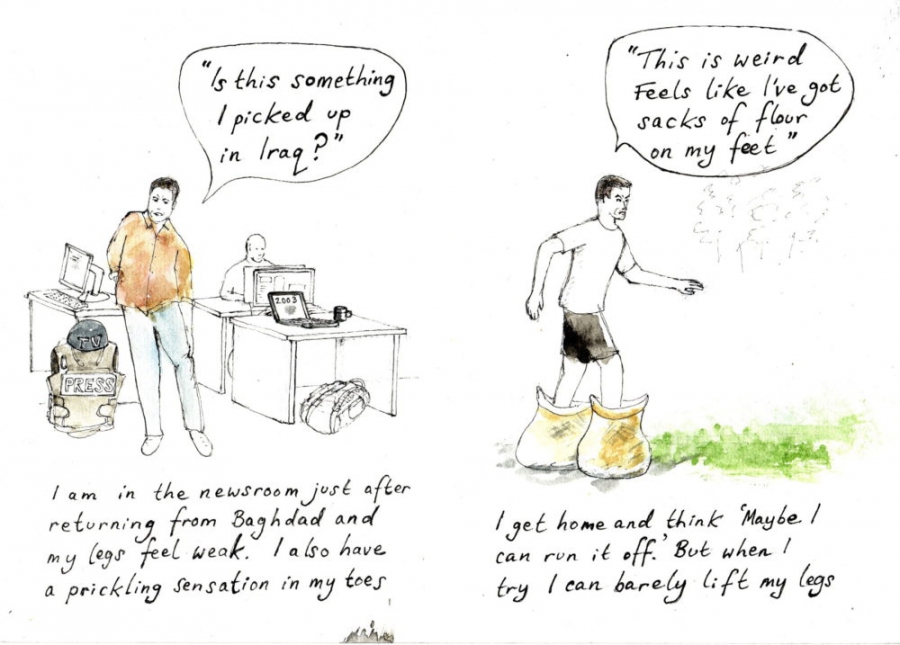 "Is this something
I picked up
in Iraq?"
TV
PRESS
2003
I am in the newsroom just after
returning from Baghdad and
my legs feel weak. I also have
a prickling sensation in my toes
"This is weird
Feels like I've got
sacks of flour
on my feet"
I get home and think 'Maybe I
can run it off.' But when I
try I can barely lift my legs